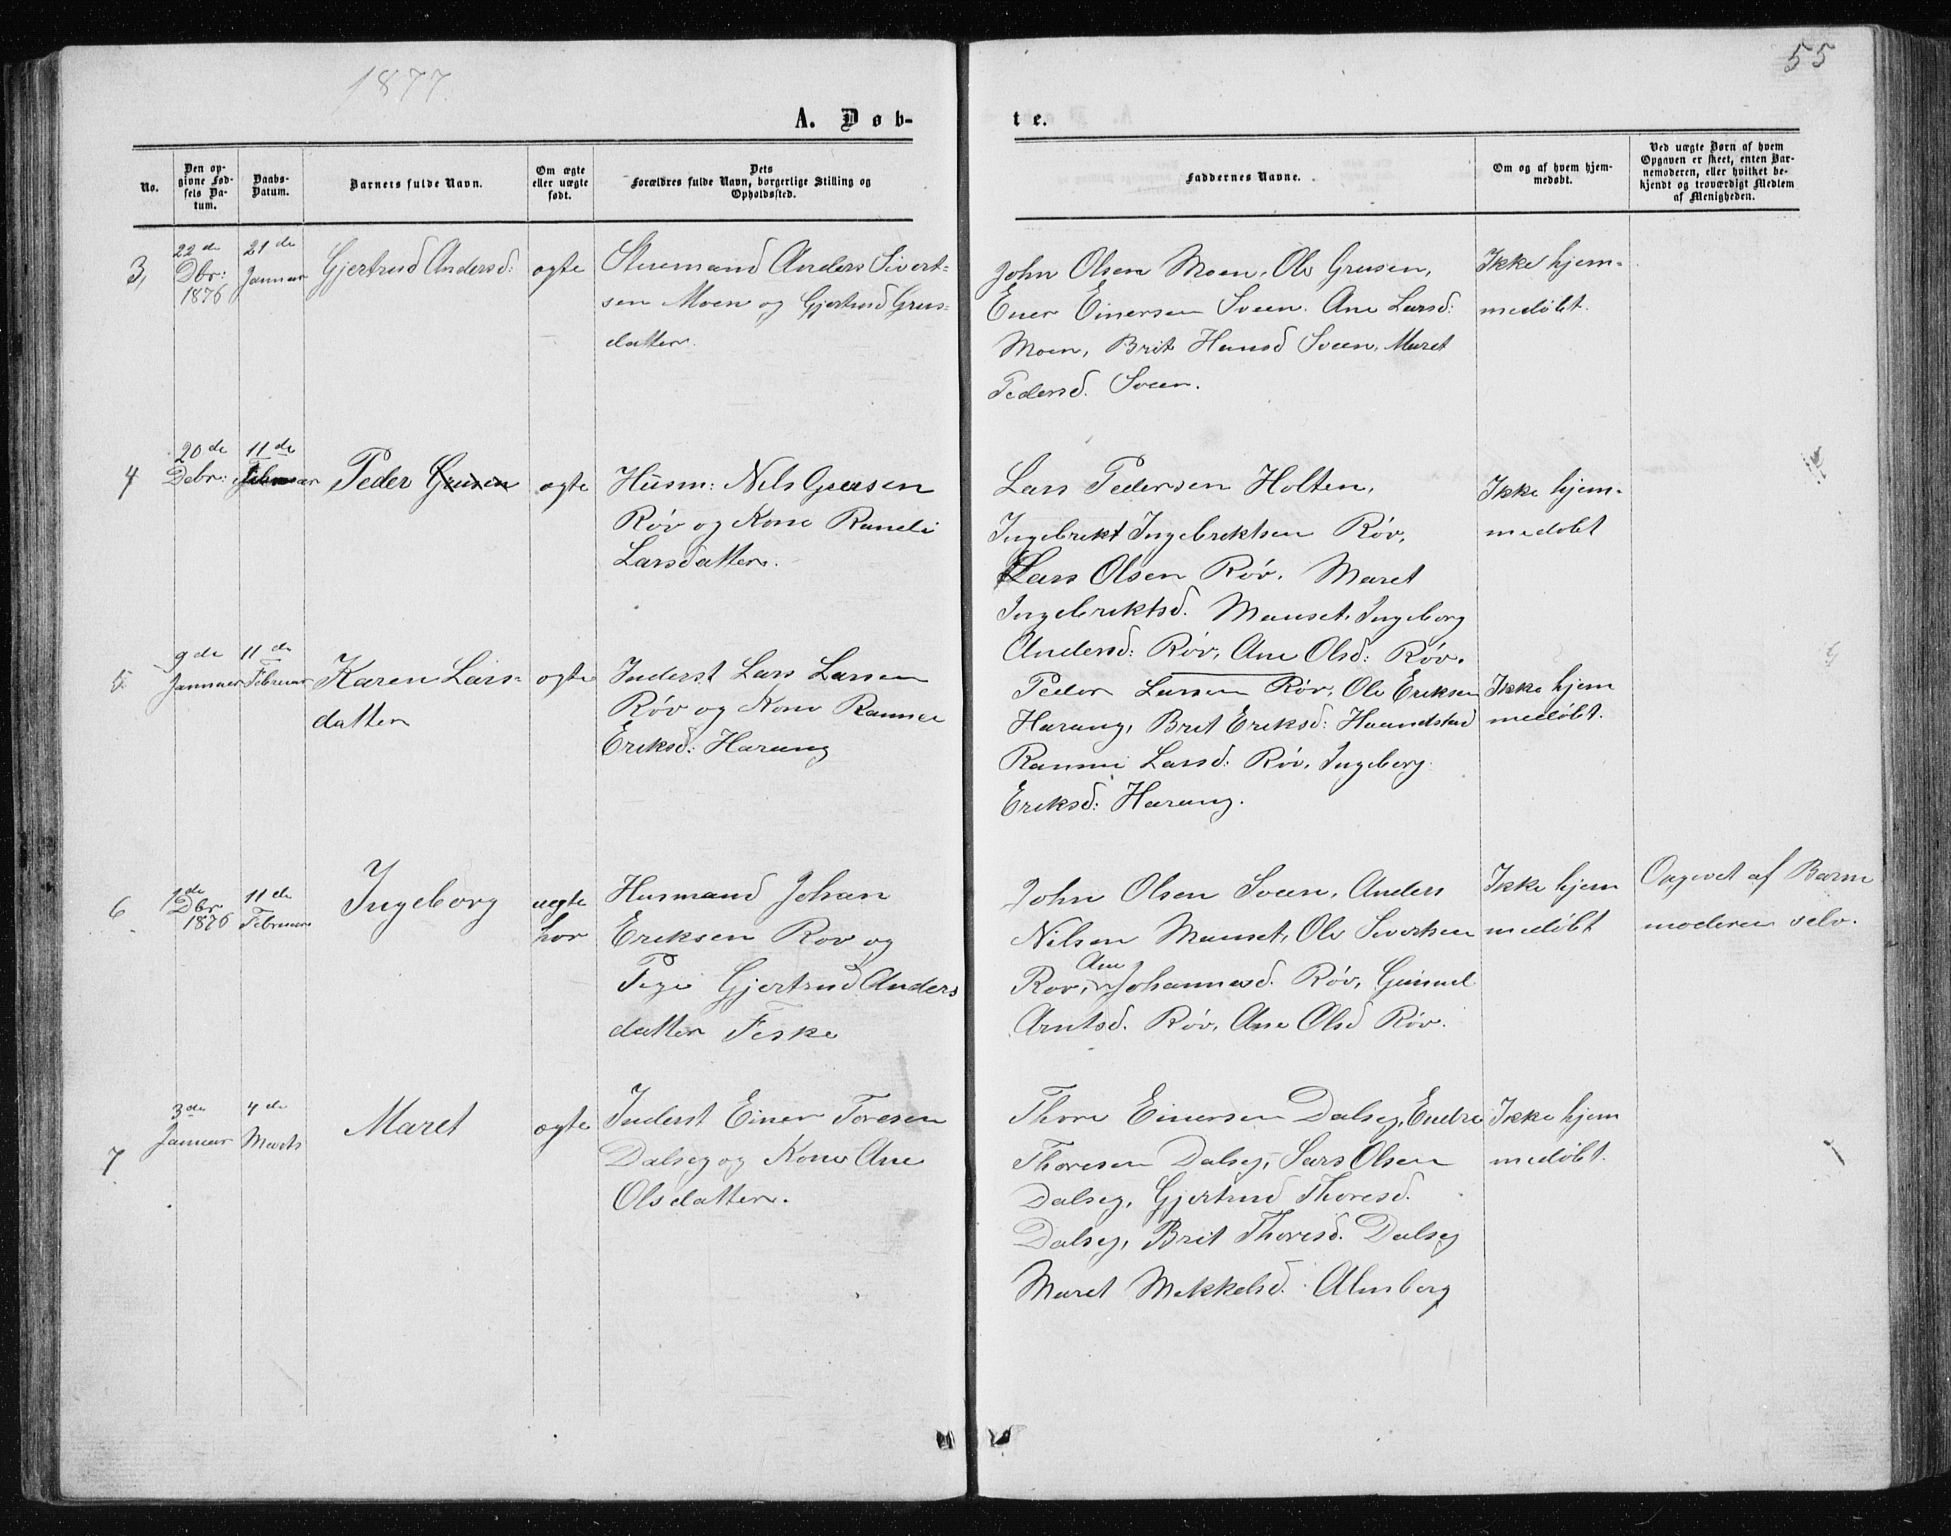 1877.
55
A. Døb-
te.
No.
Den op-
givne Fød-
sels Da-
tum.
Daabs-
Datum.
Barnets fulde Navn.
Om ægte
eller uægte
født.
Dets
Forældres fulde Navn, borgerlige Stilling og
Opholdssted.
Faddernes Navne.
Om og af hvem hjem-
medøbt.
Ved uægte Børn af hvem
Opgaven er skeet, enten Bar-
nemoderen, eller hvilket be-
kjendt og troværdigt Medlem
af Menigheden.
3,
22de
Dbr:
1876
21de
Januar
Gjertrud Andersd:
ægte
Anders Sivert-
sen Moen og Gjertrud Grus-
datter.
John Olsen Moen, Ole Grusen,
Ener Einersen Sveen. Ane Larsd:
Moen, Brit Hansd Sveen, Maret
Pedersd. Sveen.
Ikke hjem-
medøbt.
4
20de
Debr:
11de
Februar
Peder Grusen
ægte
Husm: Nils Grusen
Røv og Kone Randi
Larsdatter.
Lars Pedersen Holten,
Ingebrikt Ingebriktsen Røv,
Lars Olsen Røv. Maret
Ingebriktsd. Mauset, Ingeborg
Andersd: Røv, Ane Olsd: Røv.
Ikke hjem-
medøbt
5.
9de
Januar
11de
Februar
Karen Lars-
datter
ægte
Inderst Lars Larsen
Røv og Kone
Eriksd: Harang
Peder Larsen Røv, Ole Eriksen
Harang, Brit Eriksd: Haandstad
Larsd: Røv, Ingeborg
Eriksd: Harang.
Ikke hjem
medøbt.
6
1de
Dbr
1876
11de
Februar
Ingeborg
uægte
hor
Husmand Johan
Eriksen Rov og
Pige Gjertrud Anders
datter Feske
John Olsen Sveen, Anders
Nilsen Mauset, Ole Sivertsen
Rov, Ane Johannesd. Røv, Gunnel
Arntsd. Røv, Ane Olsd Røv.
Ikke hjem
medøbt
Opgivet af Barne
moderen selv.
7
3de
Januar
4de
Marts
Maret
ægte
Inderst Einer Toresen
Dalseg og Kone Ane
Olsdatter.
Thore Einersen Dalseg, Endre
Thoresen Dalseg, Lars Olsen
Dalseg, Gjertrud Thoresd.
Dalseg, Brit Thoresd. Dalseg
Maret Mikkelsd. Almberg
Ikke hjem
medøbt.